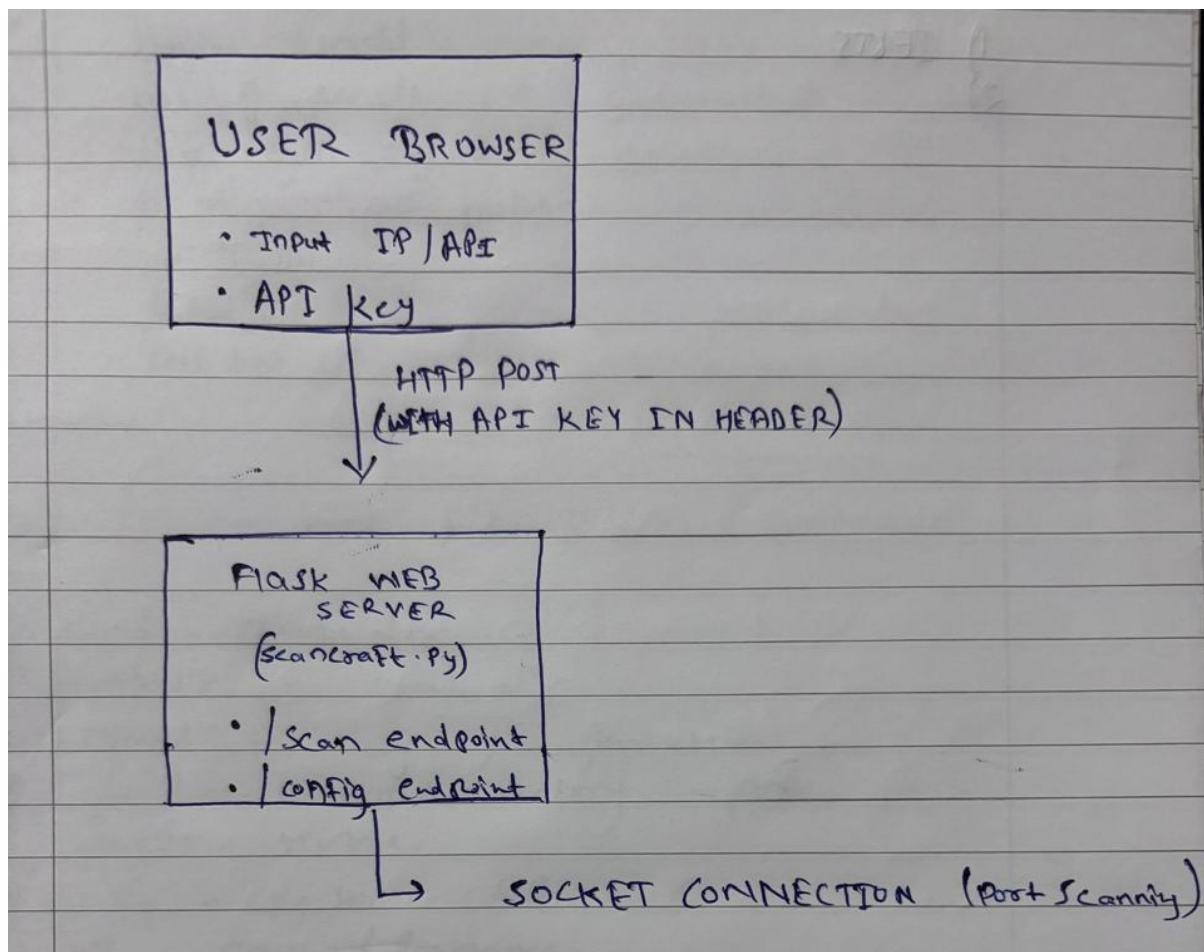 USER BROWSER
• Input IP / API
• API key
HTTP POST
(WITH API KEY IN HEADER)
Flask WEB
SERVER
(scancraft.py)
• /scan endpoint
• /config endpoint
SOCKET CONNECTION (Port Scanning)